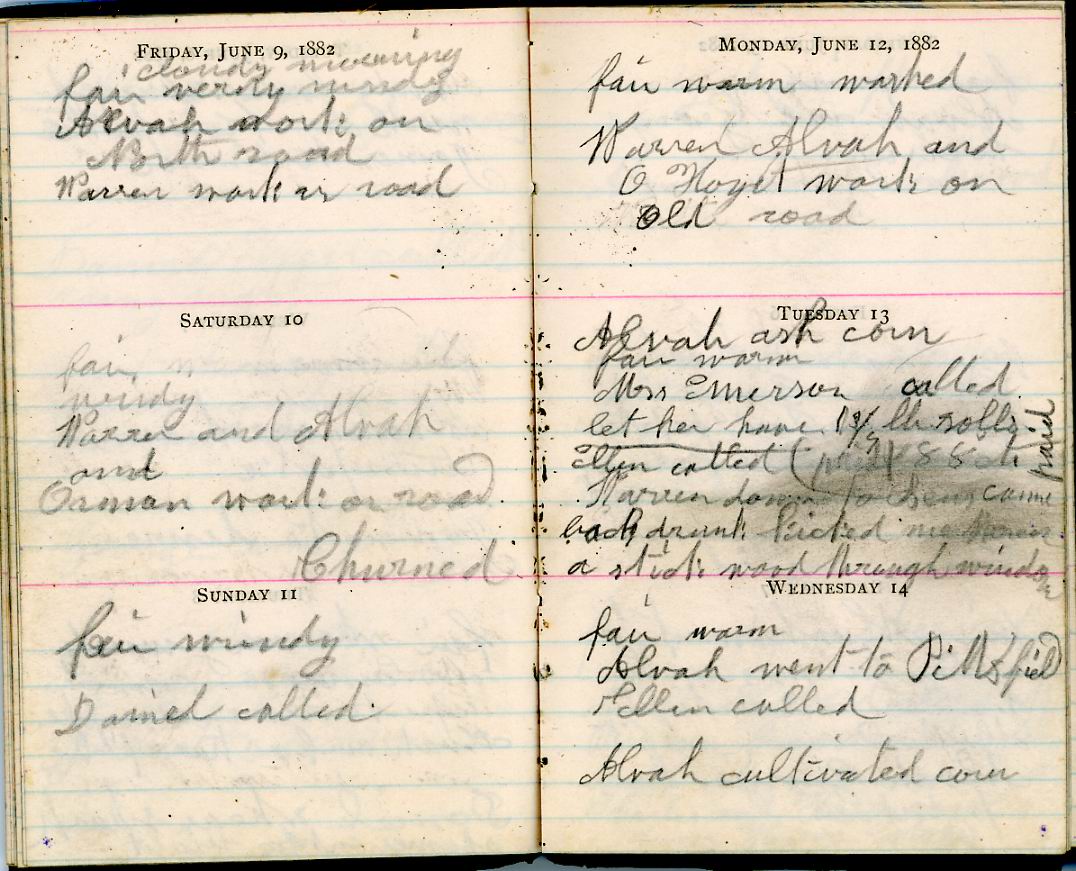 FRIDAY, JUNE 9, 1882
cloudy morning
fair verry windy
Alvah work on
North road
Warren work on road
SATURDAY 10
fair
windy
Warren and Alvah
and
Orman work on road
Churned
SUNDAY 11
fair windy
Daniel called
MONDAY, JUNE 12, 1882
fair warm washed
Warren Alvah and
O Hoyet work on
old road
TUESDAY 13
Alvah ash corn
fair warm
Mrs Emerson called
let her have lb rolls
paid
Ellen called
Warren down to came
back drunk kicked me
a stick wood through window
WEDNESDAY 14
fair warm
Alvah went to Pittsfield
Ellen called
Alvah cultivated corn